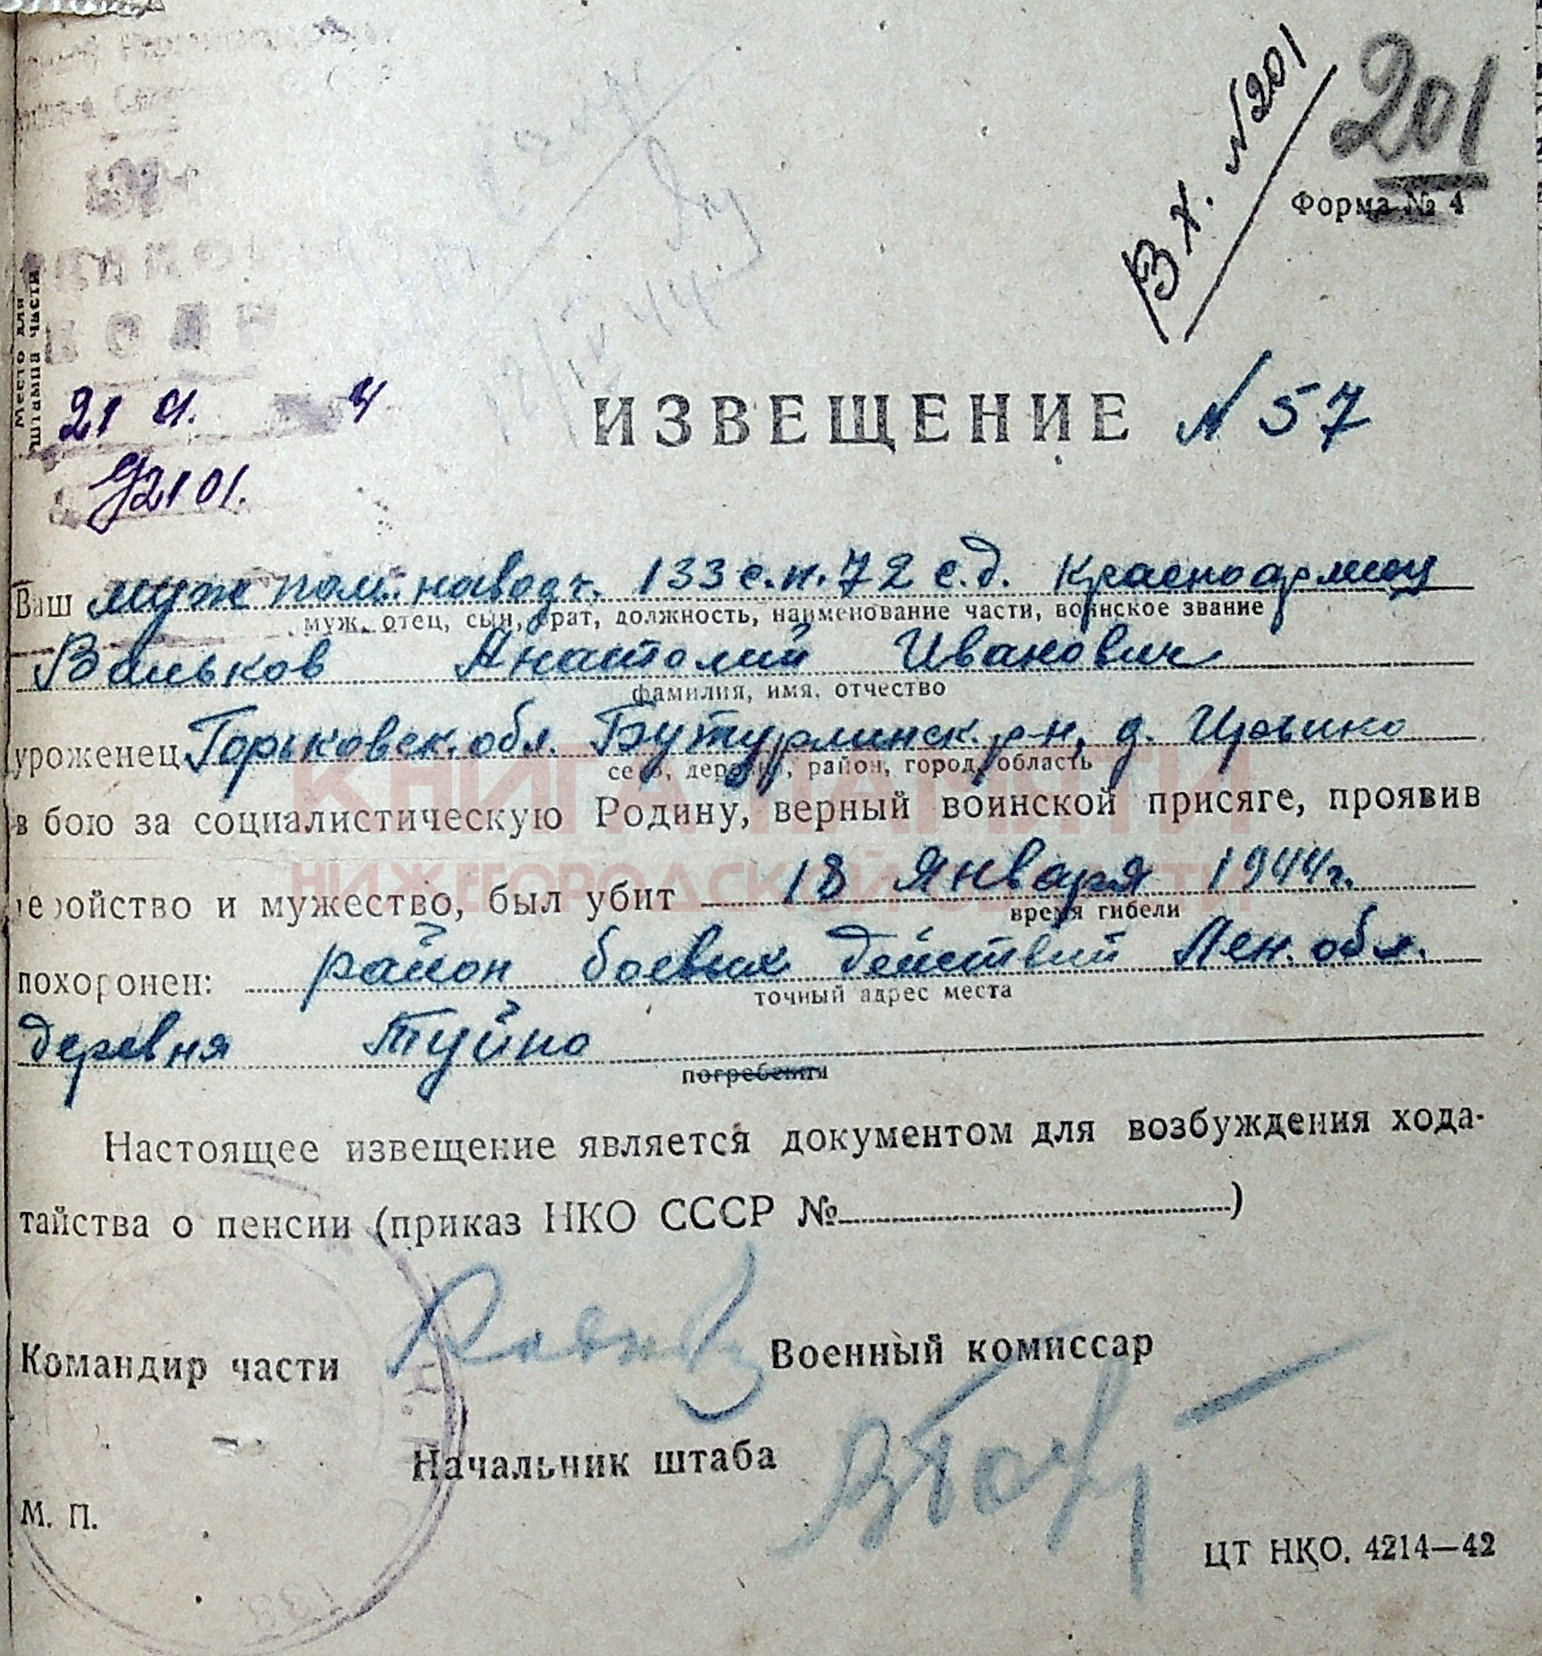 Вх. №201
201
Форма № 4
Место для
штампа части
21 01. 4
92101.
ИЗВЕЩЕНИЕ N 57
Ваш муж пом. наводч. 133 с.п. 72 с.д. Красноармеец
муж, отец, сын, брат, должность, наименование части, воинское звание
Вальков Анатолий Иванович
фамилия, имя, отчество
уроженец Горьковск. обл. Бутурлинск. р-н, д.
село, деревня, район, город, область
в бою за социалистическую Родину, верный воинской присяге, проявив
геройство и мужество, был убит 18 Января 1944г.
время гибели
похоронен: район боевых действий Лен. обл.
точный адрес места
деревня Туйпо
погребения
Настоящее извещение является документом для возбуждения хода-
тайства о пенсии (приказ НКО СССР № )
Командир части
Военный комиссар
Начальник штаба
М. П.
ЦТ НКО. 4214—42
КНИГА ПАМЯТИ
НИЖЕГОРОДСКОЙ ОБЛАСТИ